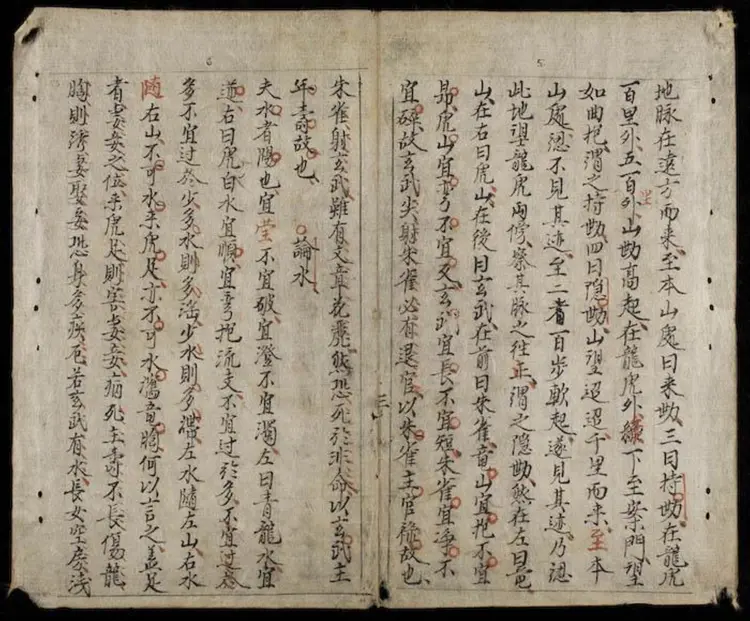 5
地脉在遠方而来至本山處曰来勢三曰持勢在龍虎
百里外五百外山勢高起在龍虎外繞下至案門望
如曲抱謂之持勢四曰隱勢山望迢迢千里而来至本
山處忽不見其迹至二者百步軟起遂見其迹乃認
此地望龍虎兩傍察其脉之往正謂之隱勢然在左曰竜
山在右曰虎山在後曰玄武在前曰朱雀竜山宜抱不宜
昂虎山宜弯不宜反玄武宜長不宜短朱雀宜净不
宜碎故玄武尖射朱雀必有退官以朱雀主官祿故也
三
6
朱雀射玄武雖有文章花然恐死於非命以玄武主
年壽故也 論水
夫水者陽也宜瑩不宜破宜澄不宜濁左曰青龍水宜
逆右曰虎白水宜順宜弯抱流交不宜过於多不宜过於
多不宜过於少多水則多淫少水則多滯左水隨左山右水
隨右山不可水来虎足亦不可水竜胸何以言之盖足
者妻妾之位来虎足則害妻妾病死主壽不長傷龍
胸則妻娶妾恐身多疾危若玄武有水長女空房淺